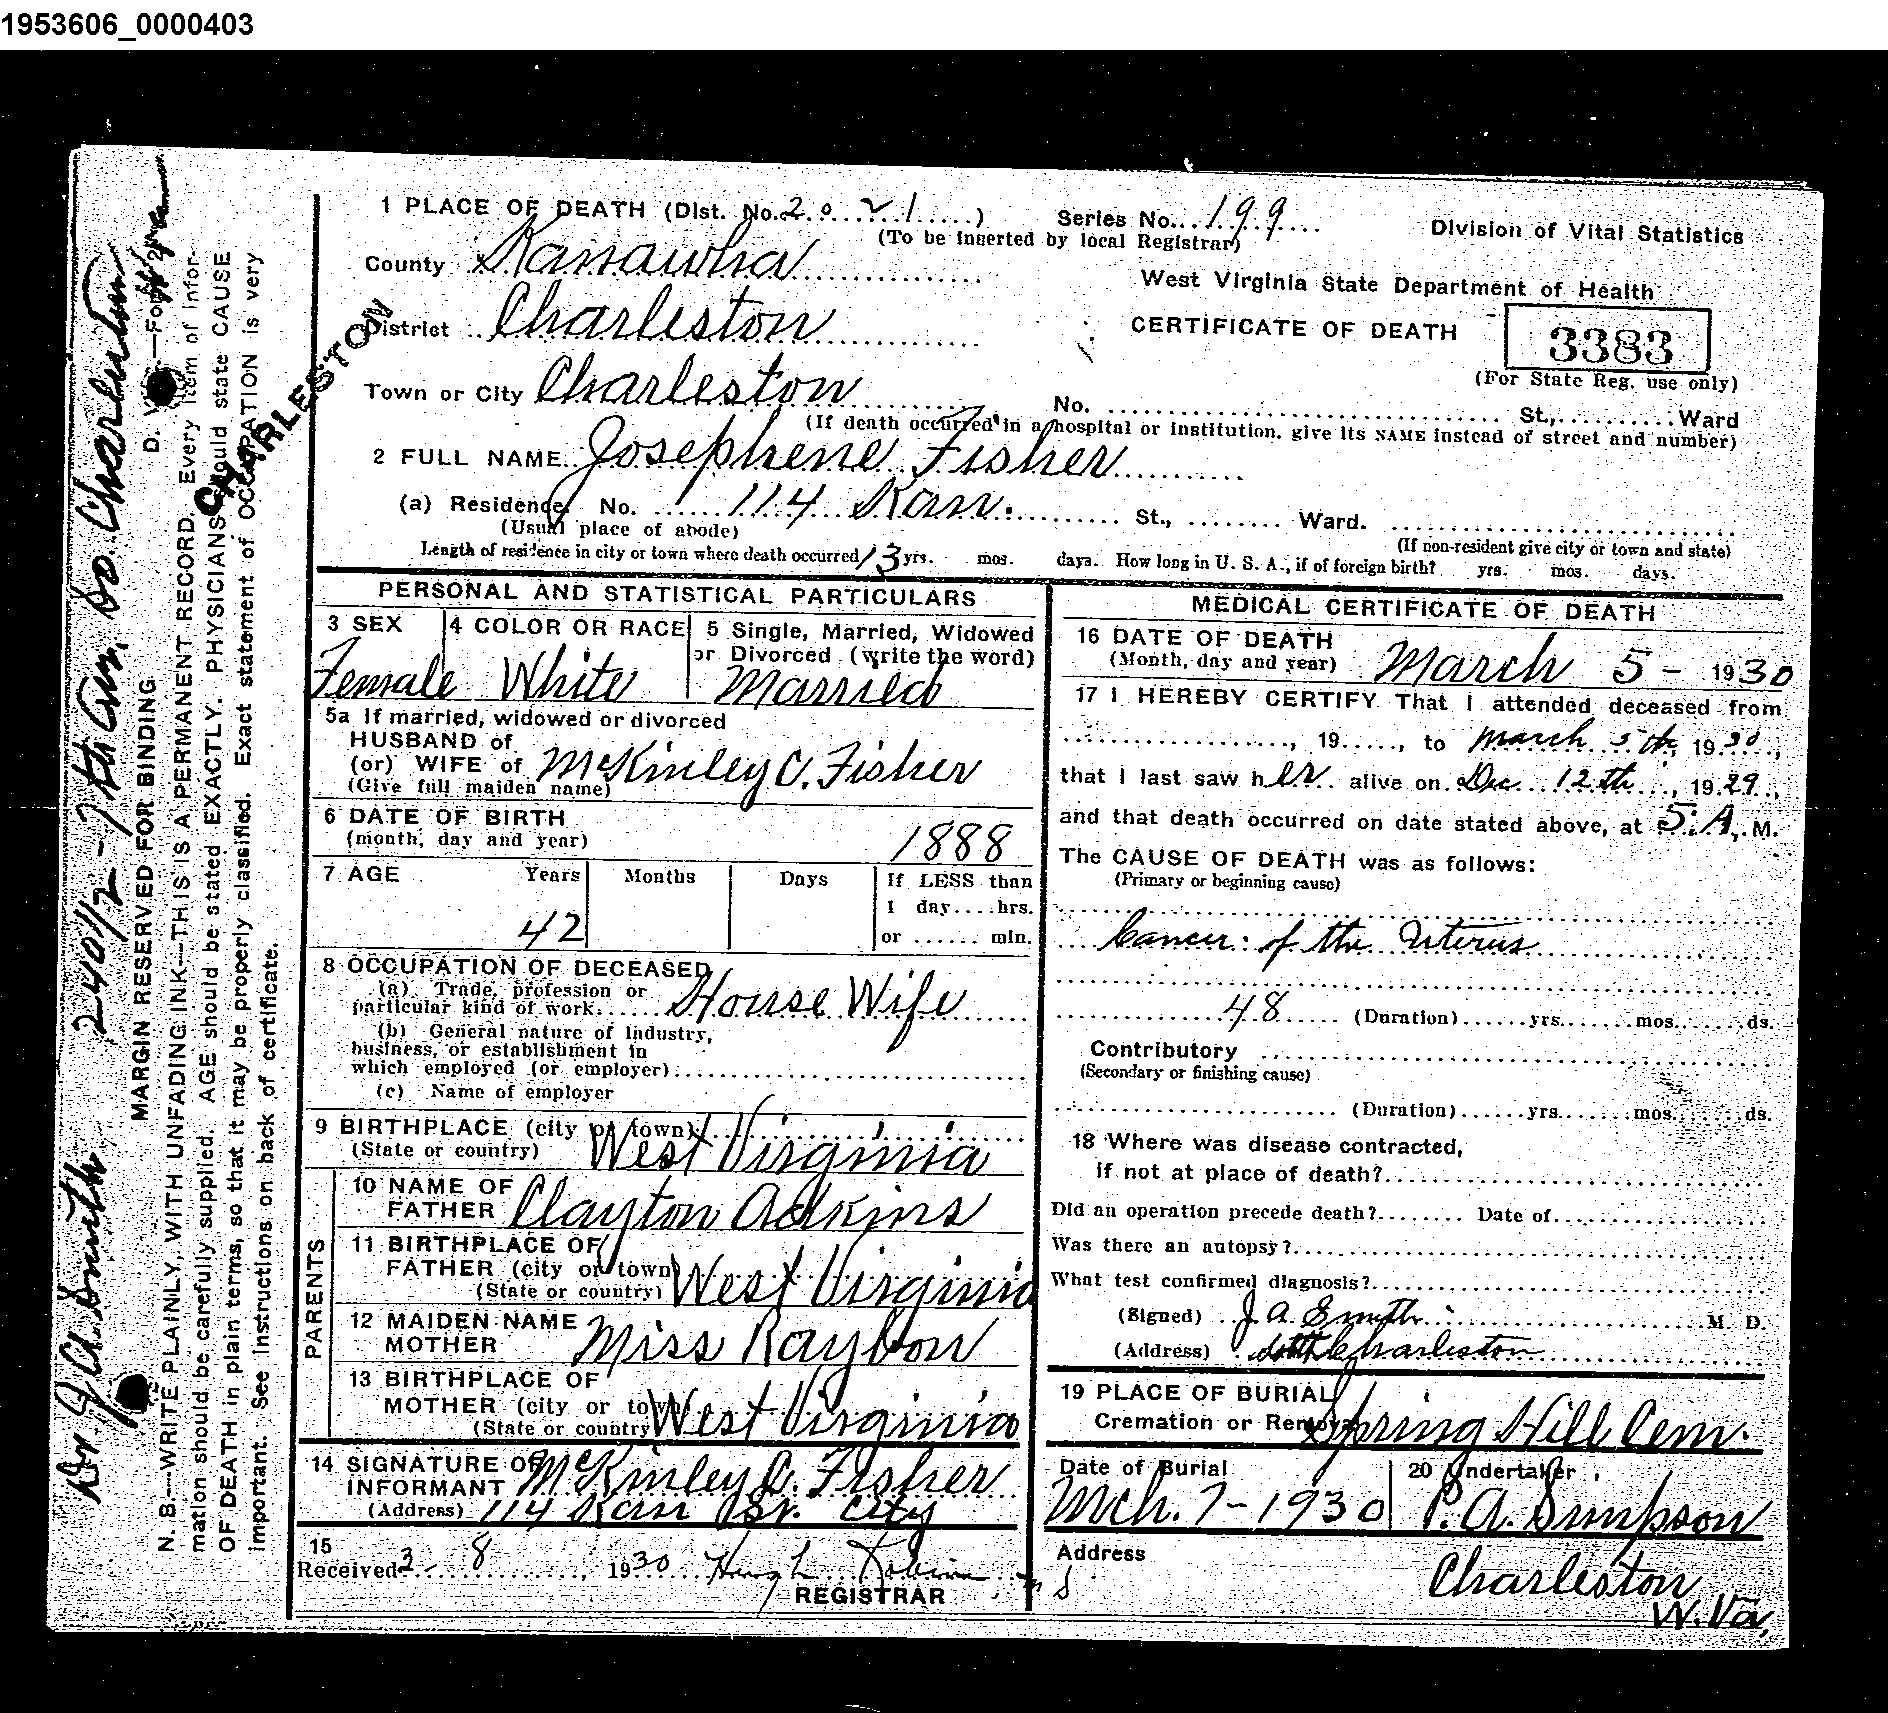 1953606_0000403
1 PLACE OF DEATH (Dist. No. 2021)
Series No. 199
(To be inserted by local Registrar)
Division of Vital Statistics
County Kanawha
West Virginia State Department of Health
District Charleston
CERTIFICATE OF DEATH
3383
(For State Reg. use only)
CHARLESTON
Town or City Charleston
No. St., Ward
(If death occurred in a hospital or institution, give its NAME instead of street and number)
2 FULL NAME Josephene Fisher
(a) Residence No. 114 Kan. St., Ward.
(Usual place of abode)
(If non-resident give city or town and state)
Length of residence in city or town where death occurred 13 yrs. mos. days. How long in U. S. A., if of foreign birth? yrs. mos. days.
PERSONAL AND STATISTICAL PARTICULARS
3 SEX
Female
4 COLOR OR RACE
White
5 Single, Married, Widowed
or Divorced (write the word)
Married
5a If married, widowed or divorced
HUSBAND of
(or) WIFE of McKinley C. Fisher
(Give full maiden name)
6 DATE OF BIRTH
(month, day and year)
1888
7 AGE Years Months Days If LESS than
1 day....hrs.
or ...... min.
42
8 OCCUPATION OF DECEASED
(a) Trade, profession or
particular kind of work House Wife
(b) General nature of industry,
business, or establishment in
which employed (or employer)
(c) Name of employer
9 BIRTHPLACE (city or town)
(State or country) West Virginia
PARENTS
10 NAME OF
FATHER Clayton Adkins
11 BIRTHPLACE OF
FATHER (city or town)
(State or country) West Virginia
12 MAIDEN NAME
MOTHER Miss Raybon
13 BIRTHPLACE OF
MOTHER (city or town)
(State or country) West Virginia
14 SIGNATURE OF
INFORMANT McKinley C. Fisher
(Address) 114 Kan St. City
15
Received 3 8, 1930 Hugh
REGISTRAR
MEDICAL CERTIFICATE OF DEATH
16 DATE OF DEATH
(Month, day and year) March 5 - 1930
17 I HEREBY CERTIFY That I attended deceased from
, 19....., to March 5th, 1930,
that I last saw her alive on Dec 12th, 1929,
and that death occurred on date stated above, at 5:A. M.
The CAUSE OF DEATH was as follows:
(Primary or beginning cause)
Cancer of the Uterus
48 (Duration) yrs. mos. ds.
Contributory
(Secondary or finishing cause)
(Duration) yrs. mos. ds.
18 Where was disease contracted,
if not at place of death?
Did an operation precede death? Date of
Was there an autopsy?
What test confirmed diagnosis?
(Signed) J. A. Smith M. D.
(Address) South Charleston
19 PLACE OF BURIAL
Cremation or Removal Spring Hill Cem.
Date of Burial
Mch. 7-1930
20 Undertaker
P. A. Simpson
Address
Charleston
W. Va.
Dr J A Smith 240 1/2 - 7th Av. So Charleston
D.
MARGIN RESERVED FOR BINDING
N. B.—WRITE PLAINLY, WITH UNFADING INK—THIS IS A PERMANENT RECORD. Every item of infor-
mation should be carefully supplied. AGE should be stated EXACTLY. PHYSICIANS should state CAUSE
OF DEATH in plain terms, so that it may be properly classified. Exact statement of OCCUPATION is very
important. See instructions on back of certificate.